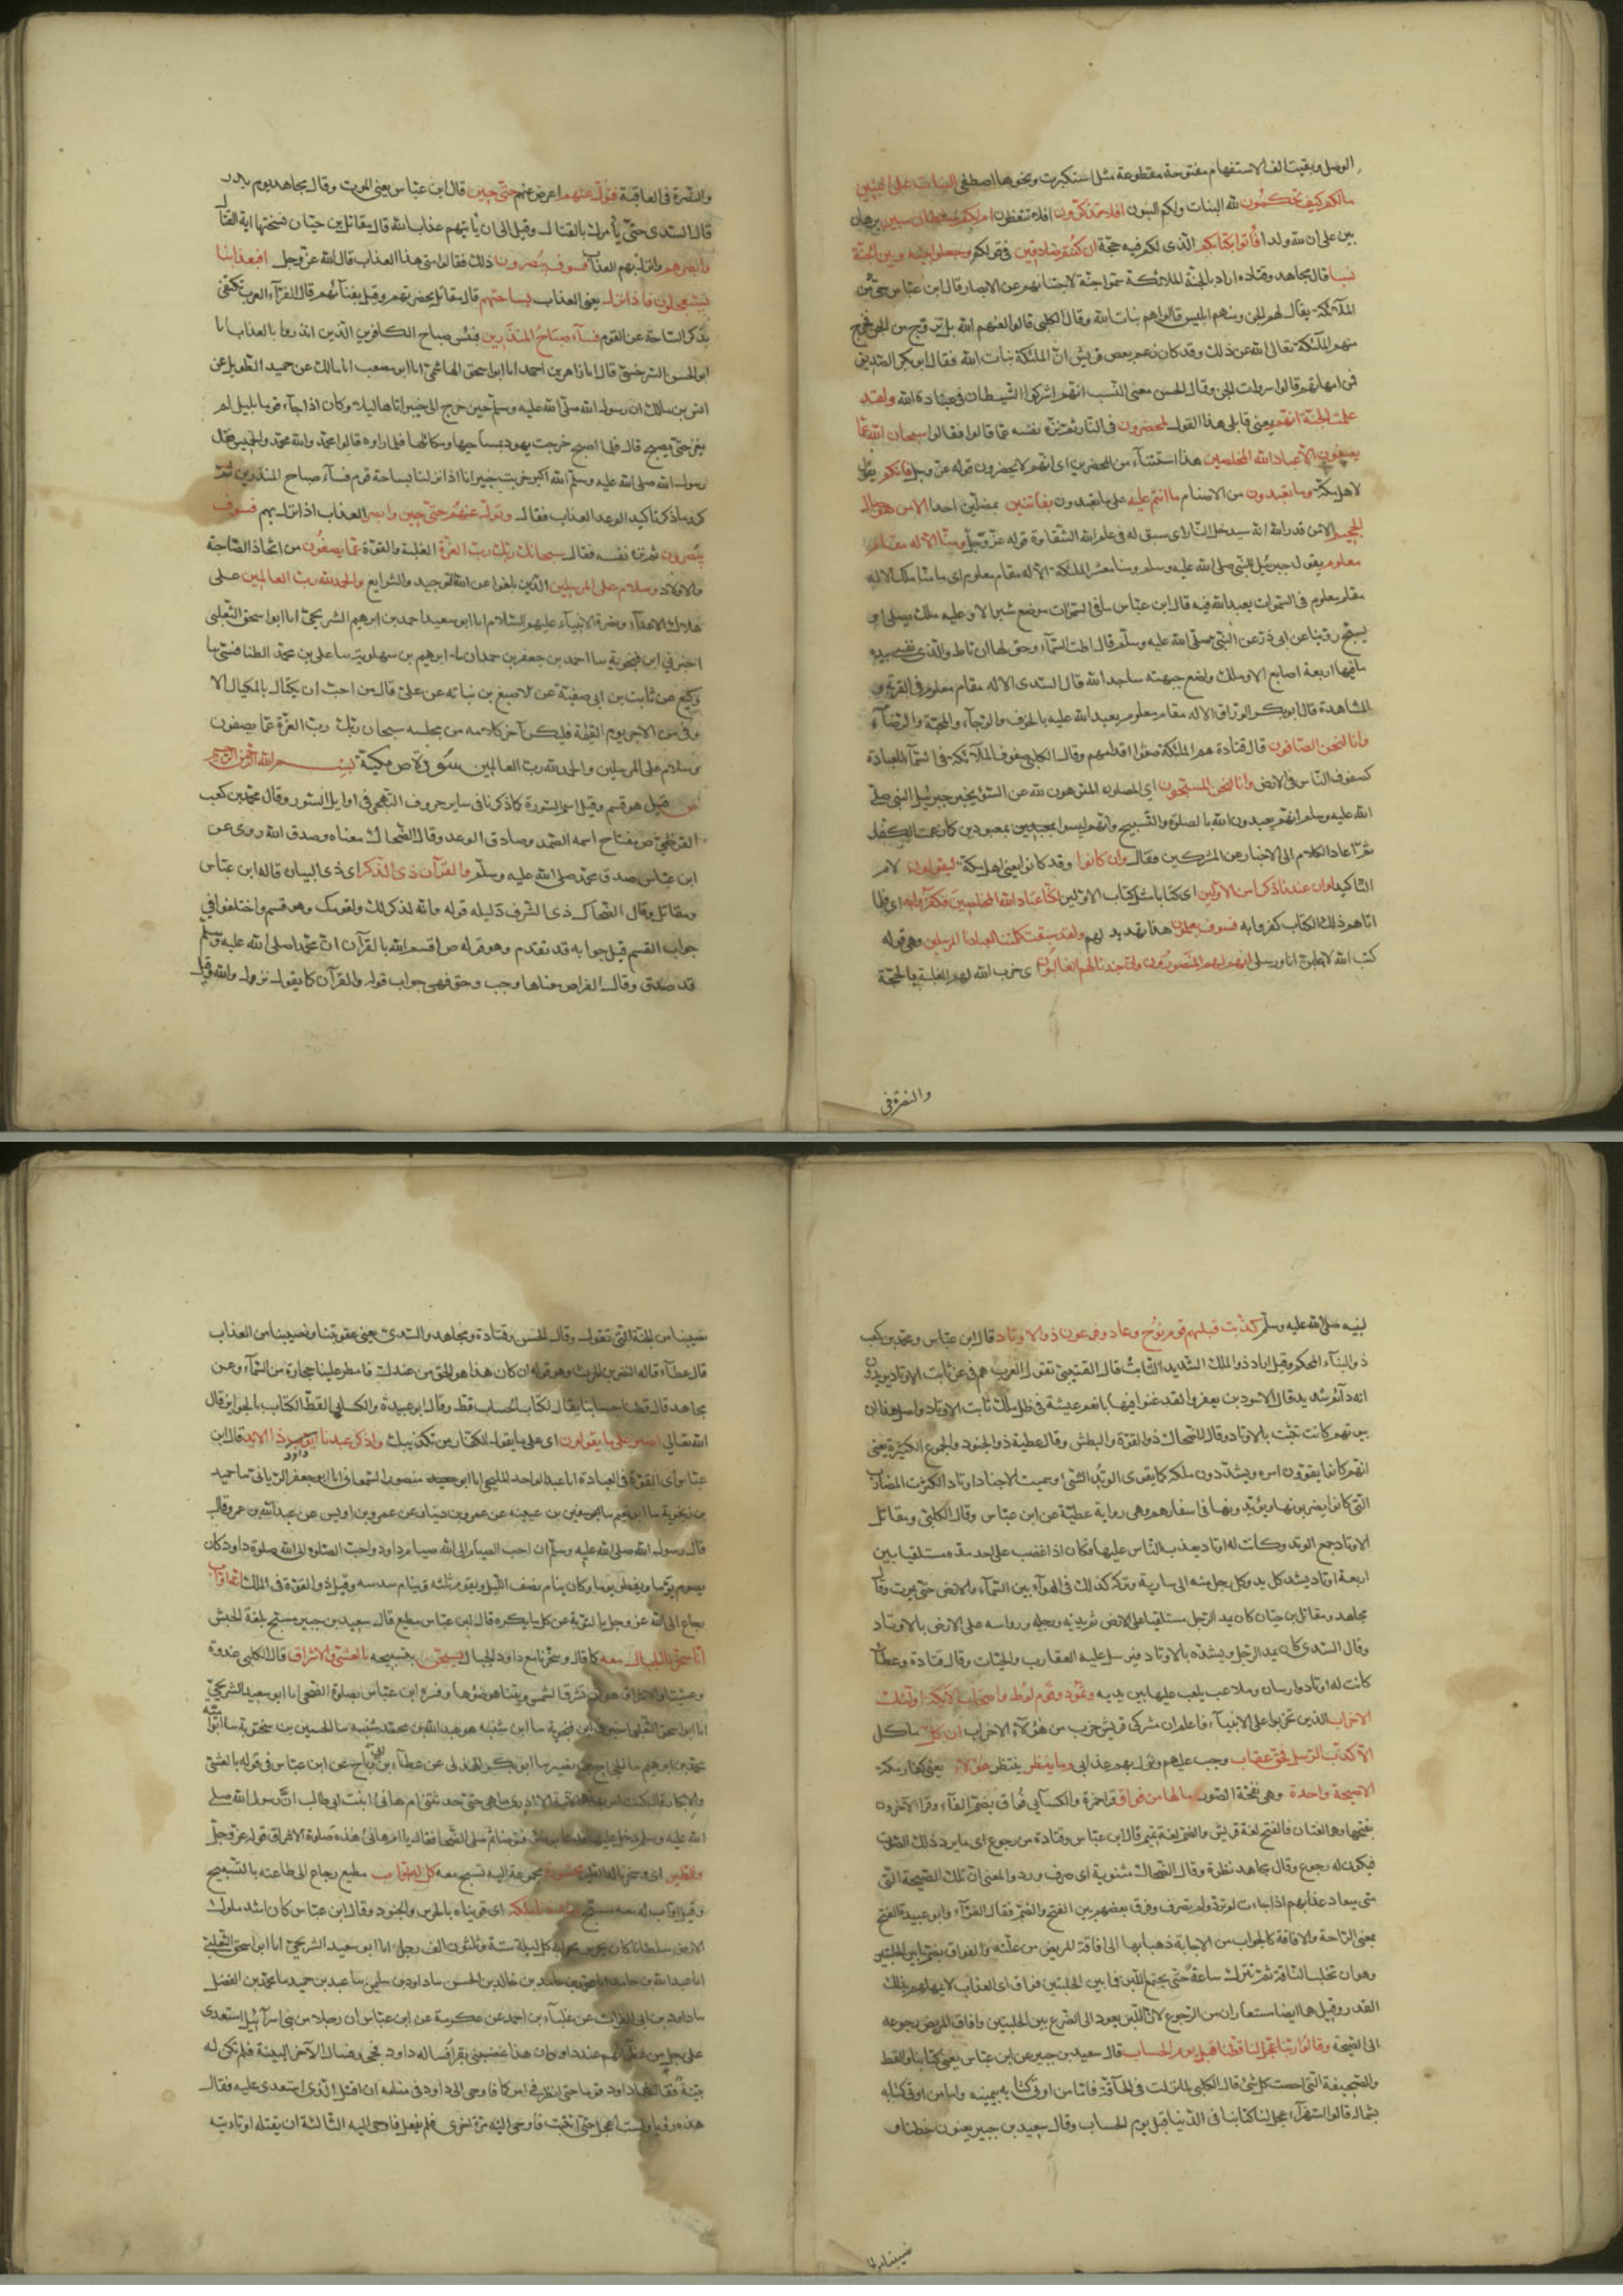 الوصل وبقيت الف الاستفهام مفتوحة مقطوعة مثل استكبرت ونحوها اصطفى البنات على البنين
مالكم كيف تحكمون لله البنات ولكم البنون افلا تذكرون افلا تتعظون ام لكم سلطان مبين برهان
بين على ان لله ولدا فأتوا بكتابكم الذى لكم فيه حجة ان كنتم صادقين فى قولكم وجعلوا بينه وبين الجنة
نسبا قال مجاهد وقتاده اراد بالجنة الملائكة سموا جنة لاجتنانهم عن الابصار قال ابن عباس حى من
الملآئكة يقال لهم الجن ومنهم ابليس قالوا هم بنات الله وقال الكلبى قالوا لعنهم الله بل تزوج من الجن فخرج
منهم الملآئكة تعالى الله عن ذلك وقد كان زعم بعض قريش ان الملئكة بنات الله فقال ابو بكر الصديق
فمن امهاتهم قالوا سروات الجن وقال الحسن معنى النسب انهم اشركوا الشيطان فى عبادة الله ولقد
علمت الجنة انهم يعنى قايلى هذا القول لمحضرون فى النار ثم نزه نفسه عما قالوا فقال سبحان الله عما
يصفون الا عباد الله المخلصين هذا استثناء من المحضرين اى انهم لا يحضرون قوله عز وجل فانكم يقول
لاهل مكة وما تعبدون من الاصنام ما انتم عليه على ما تعبدون بفاتنين بمضلين احدا الا من هو صال
الجحيم الا من قدر الله انه سيدخل النار اى سبق له فى علم الله الشقاوة قوله عز وجل وما منا الا له مقام
معلوم يقول جبرئيل للنبى صلى الله عليه وسلم وما منا معشر الملئكة الا له مقام معلوم اى ما منا ملك الا له
مقام معلوم فى السموات يعبد الله فيه قال ابن عباس ما فى السموات موضع شبر الا وعليه ملك يصلى او
يسبح روينا عن ابى ذر عن النبى صلى الله عليه وسلم قال اطت السمآء وحق لها ان تاط والذى نفسى بيده
ما فيها اربعة اصابع الا وملك واضع جبهته ساجد الله قال السدى الا له مقام معلوم فى القربة و
المشاهدة قال ابو بكر الوراق الا له مقام معلوم يعبد الله عليه بالخوف والرجآء والمحبة والرضآء
وانا لنحن الصافون قال قتادة هم الملئكة صفوا اقدامهم وقال الكلبى صفوف الملآئكة فى السمآء للعبادة
كصفوف الناس فى الارض وانا لنحن المسبحون اى المصلون المنزهون لله عن السوء يخبر جبرئيل النبى صلى
الله عليه وسلم انهم يعبدون الله بالصلوة والتسبيح وانهم ليسوا بمعبودين كما زعمت الكفار
ثم اعاد الكلام الى الاخبار عن المشركين فقال وان كانوا وقد كانوا يعنى اهل مكة ليقولون لام
التاكيد لو ان عندنا ذكرا من الاولين اى كتابا مثل كتاب الاولين لكنا عباد الله المخلصين فكفروا به اى فلما
اتاهم ذلك الكتاب كفروا به فسوف يعلمون هذا تهديد لهم ولقد سبقت كلمتنا لعبادنا المرسلين وهى قوله
كتب الله لاغلبن انا ورسلى انهم لهم المنصورون وان جندنا لهم الغالبون اى حزب الله لهم الغلبة بالحجة
والنصرة فى
والنصرة فى العاقبة فتول عنهم اعرض عنهم حتى حين قال ابن عباس يعنى الموت وقال مجاهد يوم بدر
قال السدى حتى يأمرك بالقتال وقيل الى ان يأتيهم عذاب الله قال مقاتل بن حيان نسختها اية القتال
وابصرهم اذا نزل بهم العذاب فسوف يبصرون ذلك فقالوا متى هذا العذاب قال الله عز وجل افبعذابنا
يستعجلون فاذا نزل يعنى العذاب بساحتهم قال مقاتل بحضرتهم وقيل بفنآئهم قال الفرآء العرب تكتفى
بذكر الساحة عن القوم فسآء صباح المنذرين فبئس صباح الكافرين الذين انذروا بالعذاب انا
ابو الحسن السرخسى قال انا زاهر بن احمد انا ابو اسحق الهاشمى انا ابو مصعب انا مالك عن حميد الطويل عن
انس بن مالك ان رسول الله صلى الله عليه وسلم حين خرج الى خيبر اتاها ليلا وكان اذا جآء قوما بليل لم
يغر حتى يصبح قال فلما اصبح خرجت يهود بمساحيها ومكاتلها فلما راوه قالوا محمد والله محمد والخميس فقال
رسول الله صلى الله عليه وسلم الله اكبر خربت خيبر انا اذا نزلنا بساحة قوم فسآء صباح المنذرين ثم
كرر ما ذكر تأكيدا لوعد العذاب فقال وتول عنهم حتى حين وابصر العذاب اذا نزل بهم فسوف
يبصرون ثم نزه نفسه فقال سبحان ربك رب العزة الغلبة والقوة عما يصفون من اتخاذ الصاحبة
والاولاد وسلام على المرسلين الذين بلغوا عن الله التوحيد والشرايع والحمد لله رب العالمين على
هلاك الاعدآء ونصرة الانبيآء عليهم السلام انا ابو سعيد احمد بن ابرهيم الشريحى انا ابو اسحق الثعلبى
اخبرنى ابن فنجوية سا احمد بن جعفر بن حمدان سا ابرهيم بن سهلوية سا على بن محمد الطنافسى سا
وكيع عن ثابت بن ابى صفية عن الاصبغ بن نباته عن على قال من احب ان يكتال بالمكيال الا
وفى من الاجر يوم القيمة فليكن آخر كلامه من مجلسه سبحان ربك رب العزة عما يصفون
وسلام على المرسلين والحمد لله رب العالمين سورة ص مكية بسم الله الرحمن الرحيم
ص قيل هو قسم وقيل اسم السورة كما ذكرنا فى ساير حروف التهجى فى اوايل السور وقال محمد بن كعب
القرظى ص مفتاح اسمه الصمد وصادق الوعد وقال الضحاك معناه صدق الله روى عن
ابن عباس صدق محمد صلى الله عليه وسلم والقرآن ذى الذكر اى ذى البيان قاله ابن عباس
ومقاتل وقال الضحاك ذى الشرف دليله قوله وانه لذكر لك ولقومك وهو قسم واختلفوا فى
جواب القسم قيل جوابه قد تقدم وهو قوله ص اقسم الله بالقرآن ان محمدا صلى الله عليه وسلم
قد صدق وقال الفرا ص معناها وجب وحق فهى جواب قوله والقرآن كما يقول نزل والله وقيل
لنبيه صلى الله عليه وسلم كذبت قبلهم قوم نوح وعاد وفرعون ذو الاوتاد قال ابن عباس ومحمد بن كعب
ذو البناء المحكم وقيل اراد ذو الملك الشديد الثابت قال القتيبى تقول العرب هم فى عز ثابت الاوتاد يريدون
انه دآئم شديد قال الاسود بن يعفر ولقد غنوا فيها بانعم عيشة فى ظل ملك ثابت الاوتاد واصل هذا ان
بيوتهم كانت تثبت بالاوتاد وقال الضحاك ذو القوة والبطش وقال عطية ذو الجنود والجموع الكثيرة يعنى
انهم كانوا يقوون امره ويشددون ملكه كما يقوى الوتد الشئ وسميت الاجناد اوتادا لكثرت المضارب
التى كانوا يضربونها ويوتدونها فى اسفارهم وهى رواية عطية عن ابن عباس وقال الكلبى ومقاتل
الاوتاد جمع الوتد وكانت له اوتاد يعذب الناس عليها وكان اذا غضب على احد مده مستلقيا بين
اربعة اوتاد يشد كل يد وكل رجل منه الى سارية وتركه كذلك فى الهوآء بين السمآء والارض حتى يموت وقال
مجاهد ومقاتل بن حيان كان يمد الرجل مستلقيا على الارض ثم يديه ورجليه ورواسه على الارض بالاوتاد
وقال السدى كان يمد الرجل ويشده بالاوتاد ويرسل عليه العقارب والحيات وقال قتادة وعطآ
كانت له اوتاد وارسان وملاعب يلعب عليها بين يديه وثمود وقوم لوط واصحاب الايكة اولئك
الاحزاب الذين تحزبوا على الانبيآء فاعلم ان مشركى قريش حزب من هؤلآء الاحزاب ان كل ما كل
الا كذب الرسل فحق عقاب وجب عليهم ونزل بهم عذابى وما ينظر ينتظر هؤلآء يعنى كفار مكة
الا صيحة واحدة وهى نفخة الصور مالها من فواق قرا حمزة والكسآيى فواق بضم الفآء وقرا الآخرون
بفتحها وهما لغتان فالفتح لغة قريش والضم لغة تميم قال ابن عباس وقتادة من رجوع اى ما يرد ذلك الصوت
فيكون له رجوع وقال مجاهد نظرة وقال الضحاك مثنوية اى صرف ورد والمعنى ان تلك الصيحة التى
هى ميعاد عذابهم اذا جاءت لم ترد ولم تصرف وفرق بعضهم بين الفتح والضم فقال الفرآء وابو عبيدة الفتح
بمعنى الراحة والافاقة كالجواب من الاجابة ذهبا بها الى افاقة المريض من علته والفواق بالضم ما بين الحلبتين
وهو ان تحلب الناقة ثم تترك ساعة حتى يجتمع اللبن فما بين الحلبتين فواق اى العذاب لا يمهلهم بذلك
القدر وقيل هما ايضا مستعاران من الرجوع لان اللبن يعود الى الضرع بين الحلبتين وافاق المريض رجوعه
الى الصحة وقالوا ربنا عجل لنا قطنا قبل يوم الحساب قال سعيد بن جبير عن ابن عباس يعنى كتابنا والقط
والصحيفة التى احصت كل شئ قال الكلبى لما نزلت فى الحآقة فاما من اوتى كتابه بيمينه واما من اوتى كتابه
بشماله قالوا استهزآء عجل لنا كتابنا فى الدنيا قبل يوم الحساب وقال سعيد بن جبير يعنون حظنا و
نصيبنا من الجنة
نصيبنا من الجنة التى تقول وقال الحسن وقتادة ومجاهد والسدى يعنى عقوبتنا ونصيبنا من العذاب
قال عطآء قاله النضر بن الحرث وهو قوله ان كان هذا هو الحق من عندك فامطر علينا حجارة من السمآء وعن
مجاهد قال قطنا حسابنا يقال لكتاب الحساب قط وقال ابو عبيدة والكسايى القط الكتاب بالجوايز قال
الله تعالى اصبر على ما يقولون اى على ما يقول الكفار من تكذيبك واذكر عبدنا داود ذا الايد قال ابن
عباس اى القوة فى العبادة انا عبد الواحد المليحى انا ابو منصور السمعانى انا ابو جعفر الريانى سا حميد
بن زنجوية سا ابو نعيم سا سفين بن عيينه عن عمرو بن دينار عن عمرو بن اويس عن عبد الله بن عمرو قال
قال رسول الله صلى الله عليه وسلم ان احب الصيام الى الله صيام داود واحب الصلوة الى الله صلوة داود كان
يصوم يوما ويفطر يوما وكان ينام نصف الليل ويقوم ثلثه وينام سدسه وقيل ذو القوة فى الملك انه اواب
رجاع الى الله عز وجل بالتوبة عن كل ما يكره قال ابن عباس مطيع قال سعيد بن جبير مسبح بلغة الحبش
انا سخرنا الجبال معه كما قال وسخرنا مع داود الجبال يسبحن بتسبيحه بالعشى والاشراق قال الكلبى غدوة
وعشيا والاشراق هو ان تشرق الشمس ويتناهى ضوءها وفسره ابن عباس بصلوة الضحى انا ابو سعيد الشريحى
انا ابو اسحق الثعلبى اخبرنى ابن فنجوية سا ابن شيبة
محمد بن ابرهيم سا الحجاج بن نصير سا ابو بكر الهذلى عن عطآء بن ابى رباح عن ابن عباس فى قوله بالعشى
والاشراق قال كنت امر بهذه الآية لا ادرى ما هى حتى حدثتنى ام هانئ بنت ابى طالب ان رسول الله صلى
الله عليه وسلم دخل عليها فدعا بوضوء فتوضأ ثم صلى الضحا فقال يا ام هانئ هذه صلوة الاشراق قوله عز وجل
والطير اى وسخرنا له الطير محشورة مجموعة اليه تسبح معه كل له اواب مطيع رجاع الى طاعته بالتسبيح
وقيل اواب له معه مسبح وشددنا ملكه اى قويناه بالحرس والجنود وقال ابن عباس كان اشد ملوك
الارض سلطانا كان يحرس محرابه كل ليلة ستة وثلثون الف رجل انا ابو سعيد الشريحى انا ابو اسحق الثعلبى
انا عبد الله بن حامد انا محمد بن خالد بن الحسن سا داود بن سليمن سا عبد بن حميد سا محمد بن الفضل
سا داود بن ابى الفرات عن علبآء بن احمد عن عكرمة عن ابن عباس ان رجلا من بنى اسرآئيل استعدى
على رجل من عظمائهم عند داود ان هذا غصبنى بقرا فساله داود فجحد فقال للآخر البينة فلم تكن له
بينة فقال لهما داود قوما حتى انظر فى امركما فاوحى الى داود فى منامه ان اقتل الذى استعدى عليه فقال
هذه رؤيا ولست اعجل حتى اتثبت فاوحى اليه مرة اخرى فلم يفعل فاوحى اليه الثالثة ان يقتله او تاءتيه